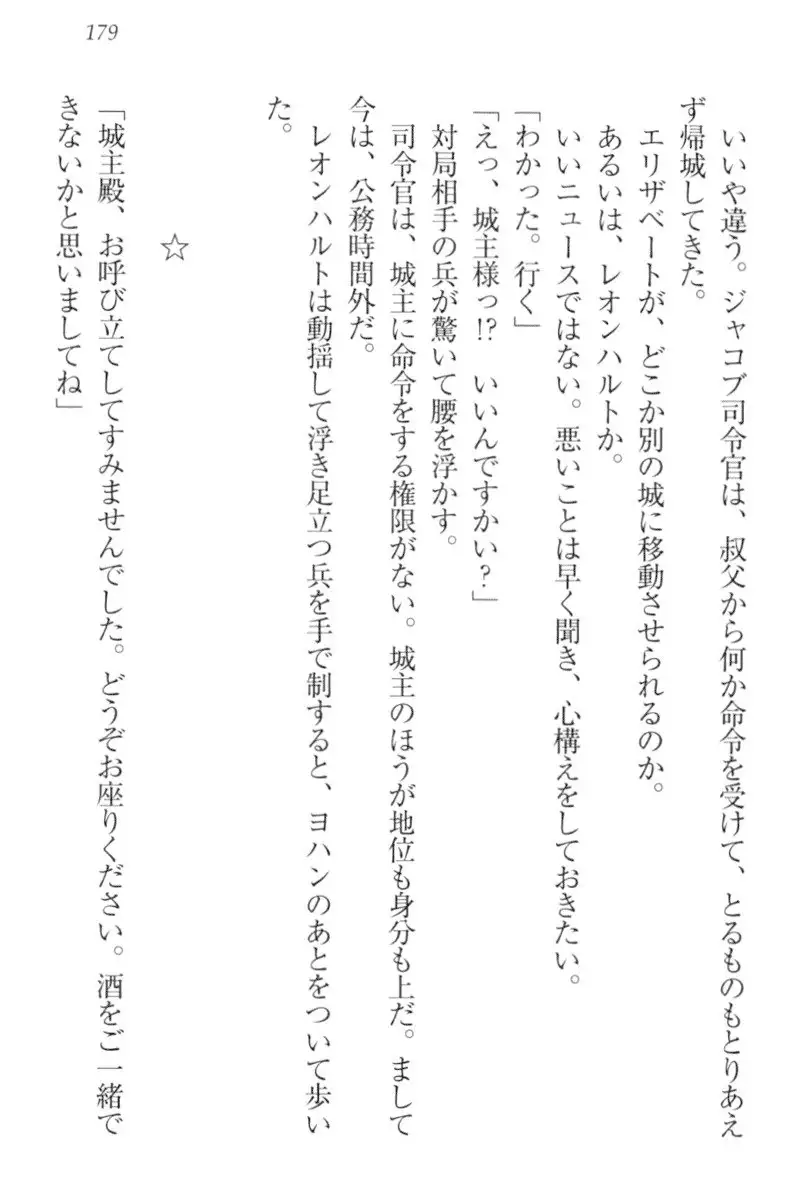 179
いいや違う。ジャコブ司令官は、叔父から何か命令を受けて、とるものもとりあえ
ず帰城してきた。
エリザベートが、どこか別の城に移動させられるのか。
あるいは、レオンハルトか。
いいニュースではない。悪いことは早く聞き、心構えをしておきたい。
「わかった。行く」
「えっ、城主様っ!?　いいんですかい？」
対局相手の兵が驚いて腰を浮かす。
司令官は、城主に命令をする権限がない。城主のほうが地位も身分も上だ。まして
今は、公務時間外だ。
レオンハルトは動揺して浮き足立つ兵を手で制すると、ヨハンのあとをついて歩い
た。
☆
「城主殿、お呼び立てしてすみませんでした。どうぞお座りください。酒をご一緒で
きないかと思いましてね」